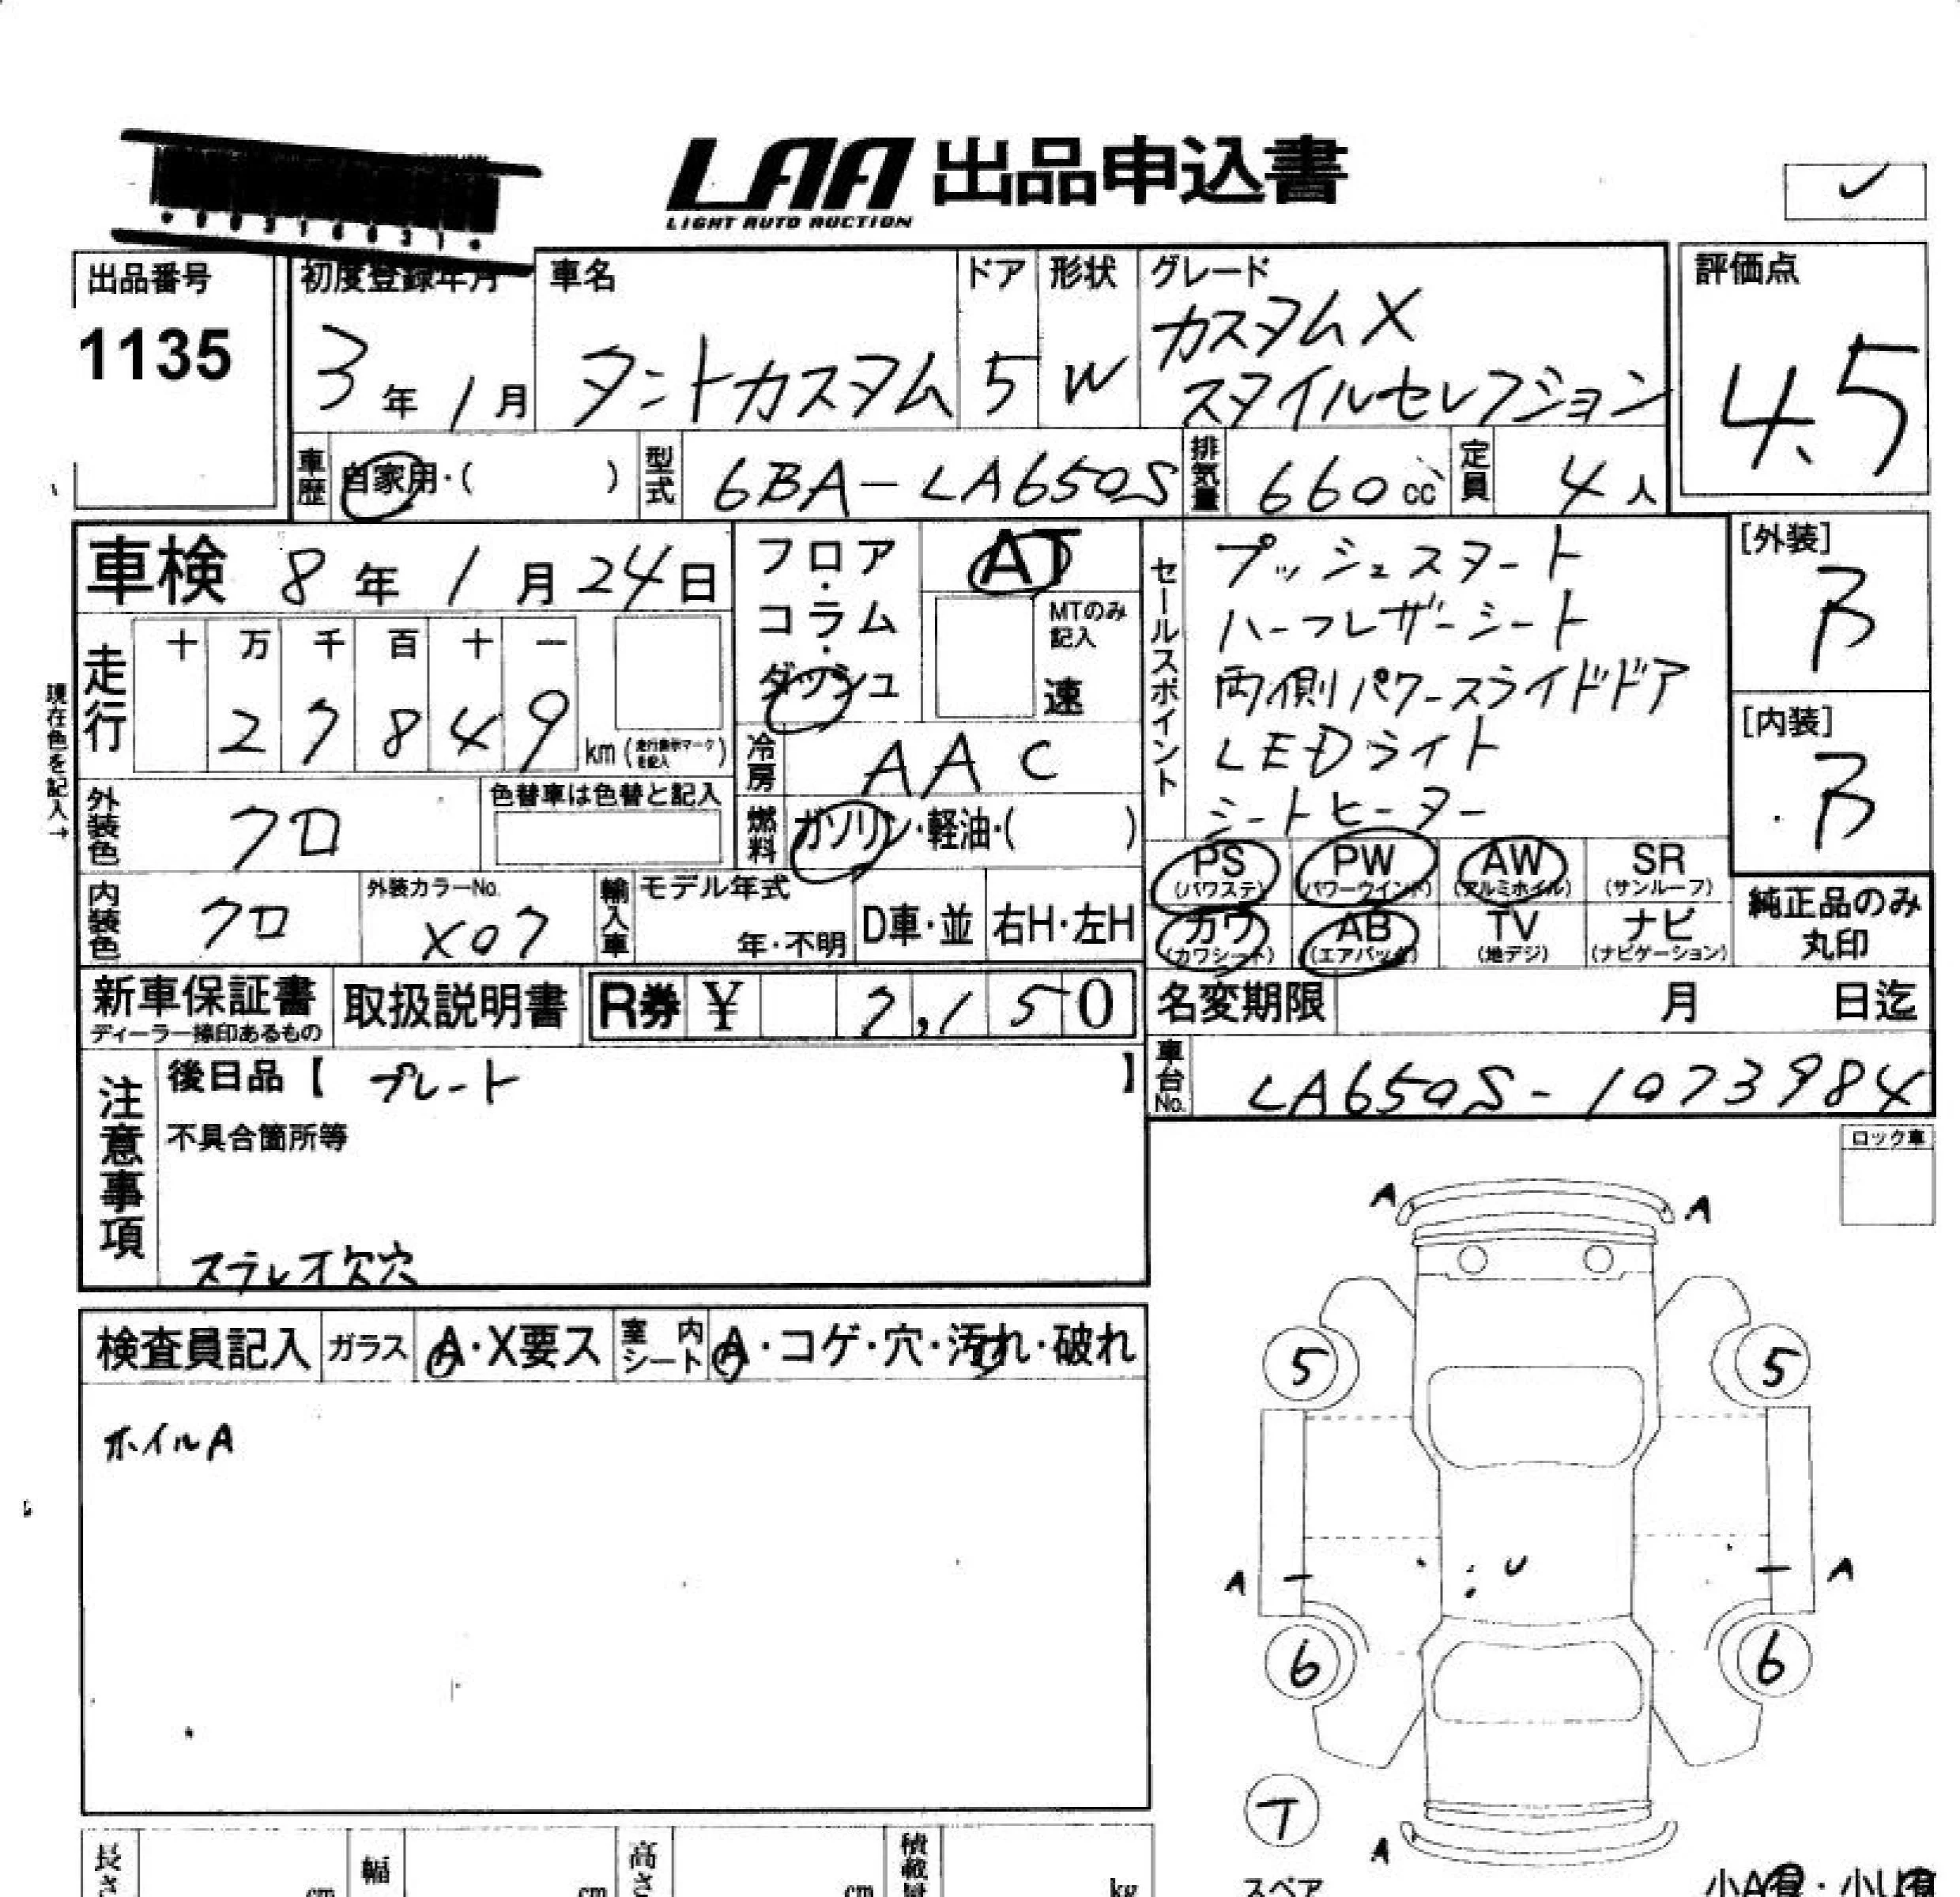 LAA 出品申込書
LIGHT AUTO AUCTION
出品番号
1135
初度登録年月
3年1月
車名
タントカスタム
ドア
5
形状
W
グレード
カスタムX
スタイルセレクション
評価点
4.5
車歴
自家用・( )
型式
6BA-LA650S
排気量
660cc
定員
4人
車検 8年1月24日
走行
十 万 千 百 十 一
2 7 8 4 9
km (走行表示マークを記入)
現在色を記入→
外装色
クロ
色替車は色替と記入
内装色
クロ
外装カラーNo.
X07
輸入車
モデル年式
年・不明
D車・並
右H・左H
フロア・コラム・ダッシュ
AT
MTのみ記入
速
冷房
AAC
燃料
ガソリン・軽油・( )
セールスポイント
プッシュスタート
ハーフレザーシート
両側パワースライドドア
LEDライト
シートヒーター
[外装]
B
[内装]
B
PS (パワステ)
PW (パワーウインド)
AW (アルミホイル)
SR (サンルーフ)
カワ (カワシート)
AB (エアバッグ)
TV (地デジ)
ナビ (ナビゲーション)
純正品のみ
丸印
新車保証書
ディーラー捺印あるもの
取扱説明書
R券 ¥ 7,150
名変期限 月 日迄
車台No.
LA650S-1073984
注意事項
後日品【 プレート 】
不具合箇所等
ステレオ欠穴
ロック車
検査員記入
ガラス
A・X要ス
室内シート
A・コゲ・穴・汚れ・破れ
ホイルA
A
A
5
5
U
A
A
6
6
T
スペア
A
長さ
cm
幅
cm
高さ
cm
積載量
kg
小A・小U